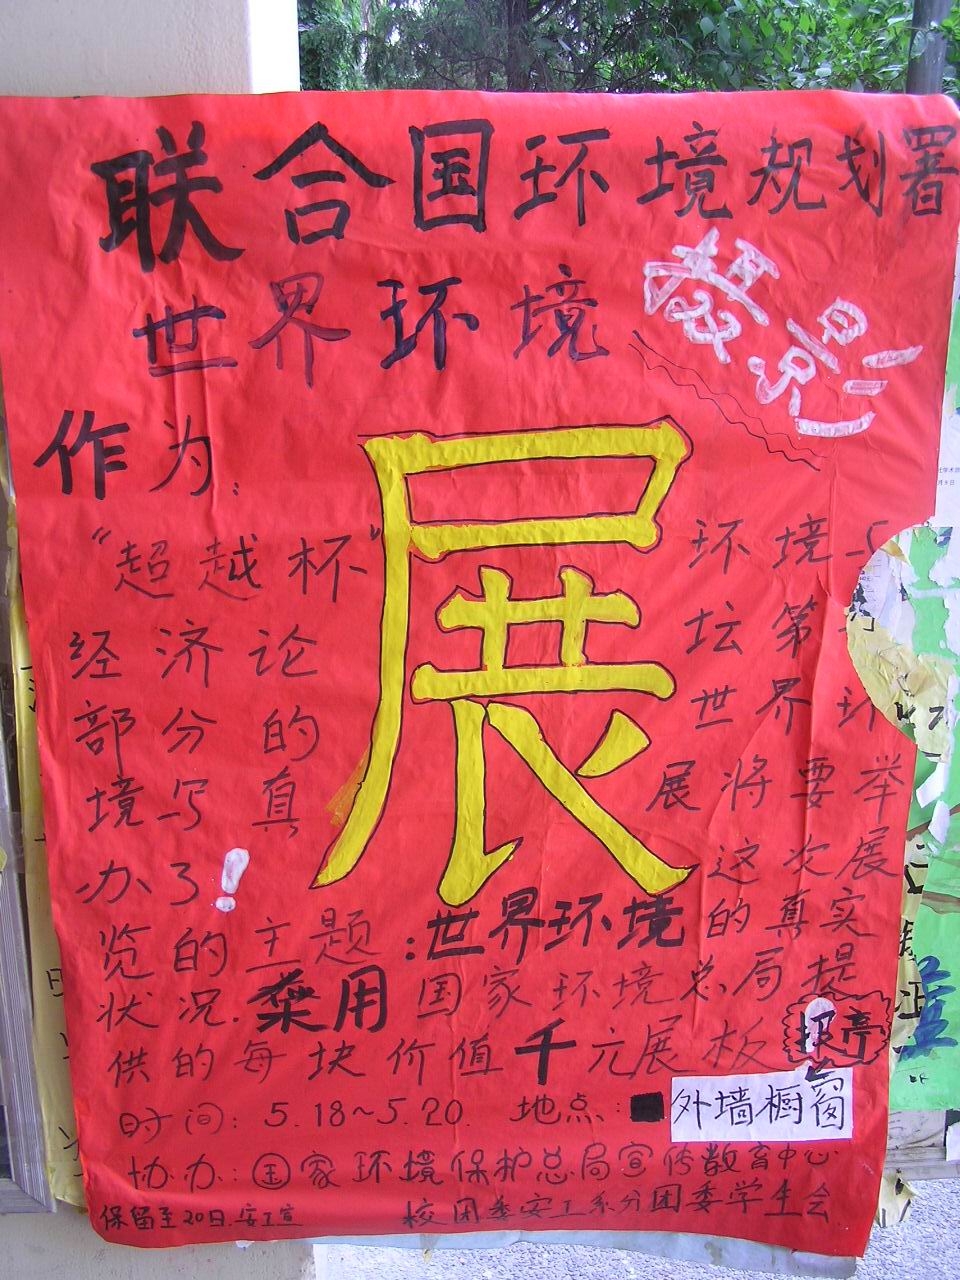 联合国环境规划署
世界环境 摄影
展
作为:
“超越杯” 环境与
经济论 坛第
部分的 世界环
境写真 展将要举
办了! 这次展
览的主题:世界环境的真实
状况.采用国家环境总局提
供的每块价值千元展板
报亭
时间: 5.18~5.20. 地点: 外墙橱窗
协办: 国家环境保护总局宣传教育中心
校团委安工系分团委学生会
保留至20日.安工宣